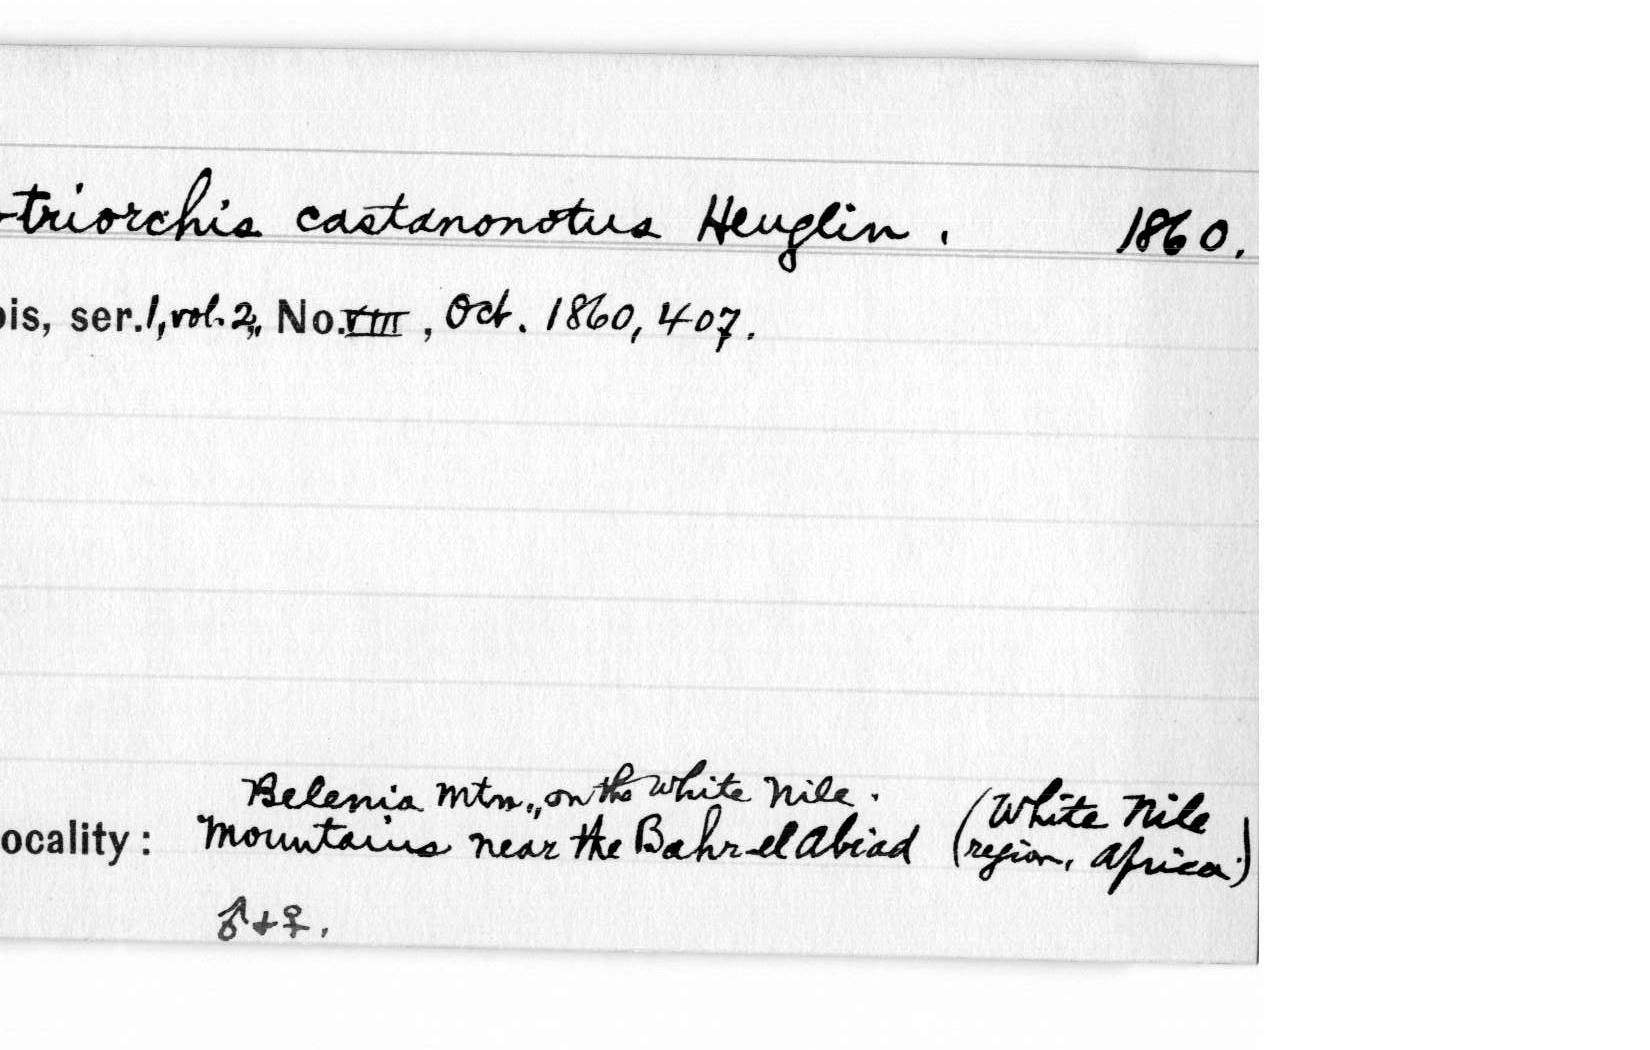 -triorchis castanonotus Heuglin. 1860.
bis, ser.1, vol. 2, No. VIII, Oct. 1860, 407.
Belenia Mtn., on the White Nile.
ocality: Mountains near the Bahr-el Abiad (White Nile region, Africa.)
♂ + ♀.